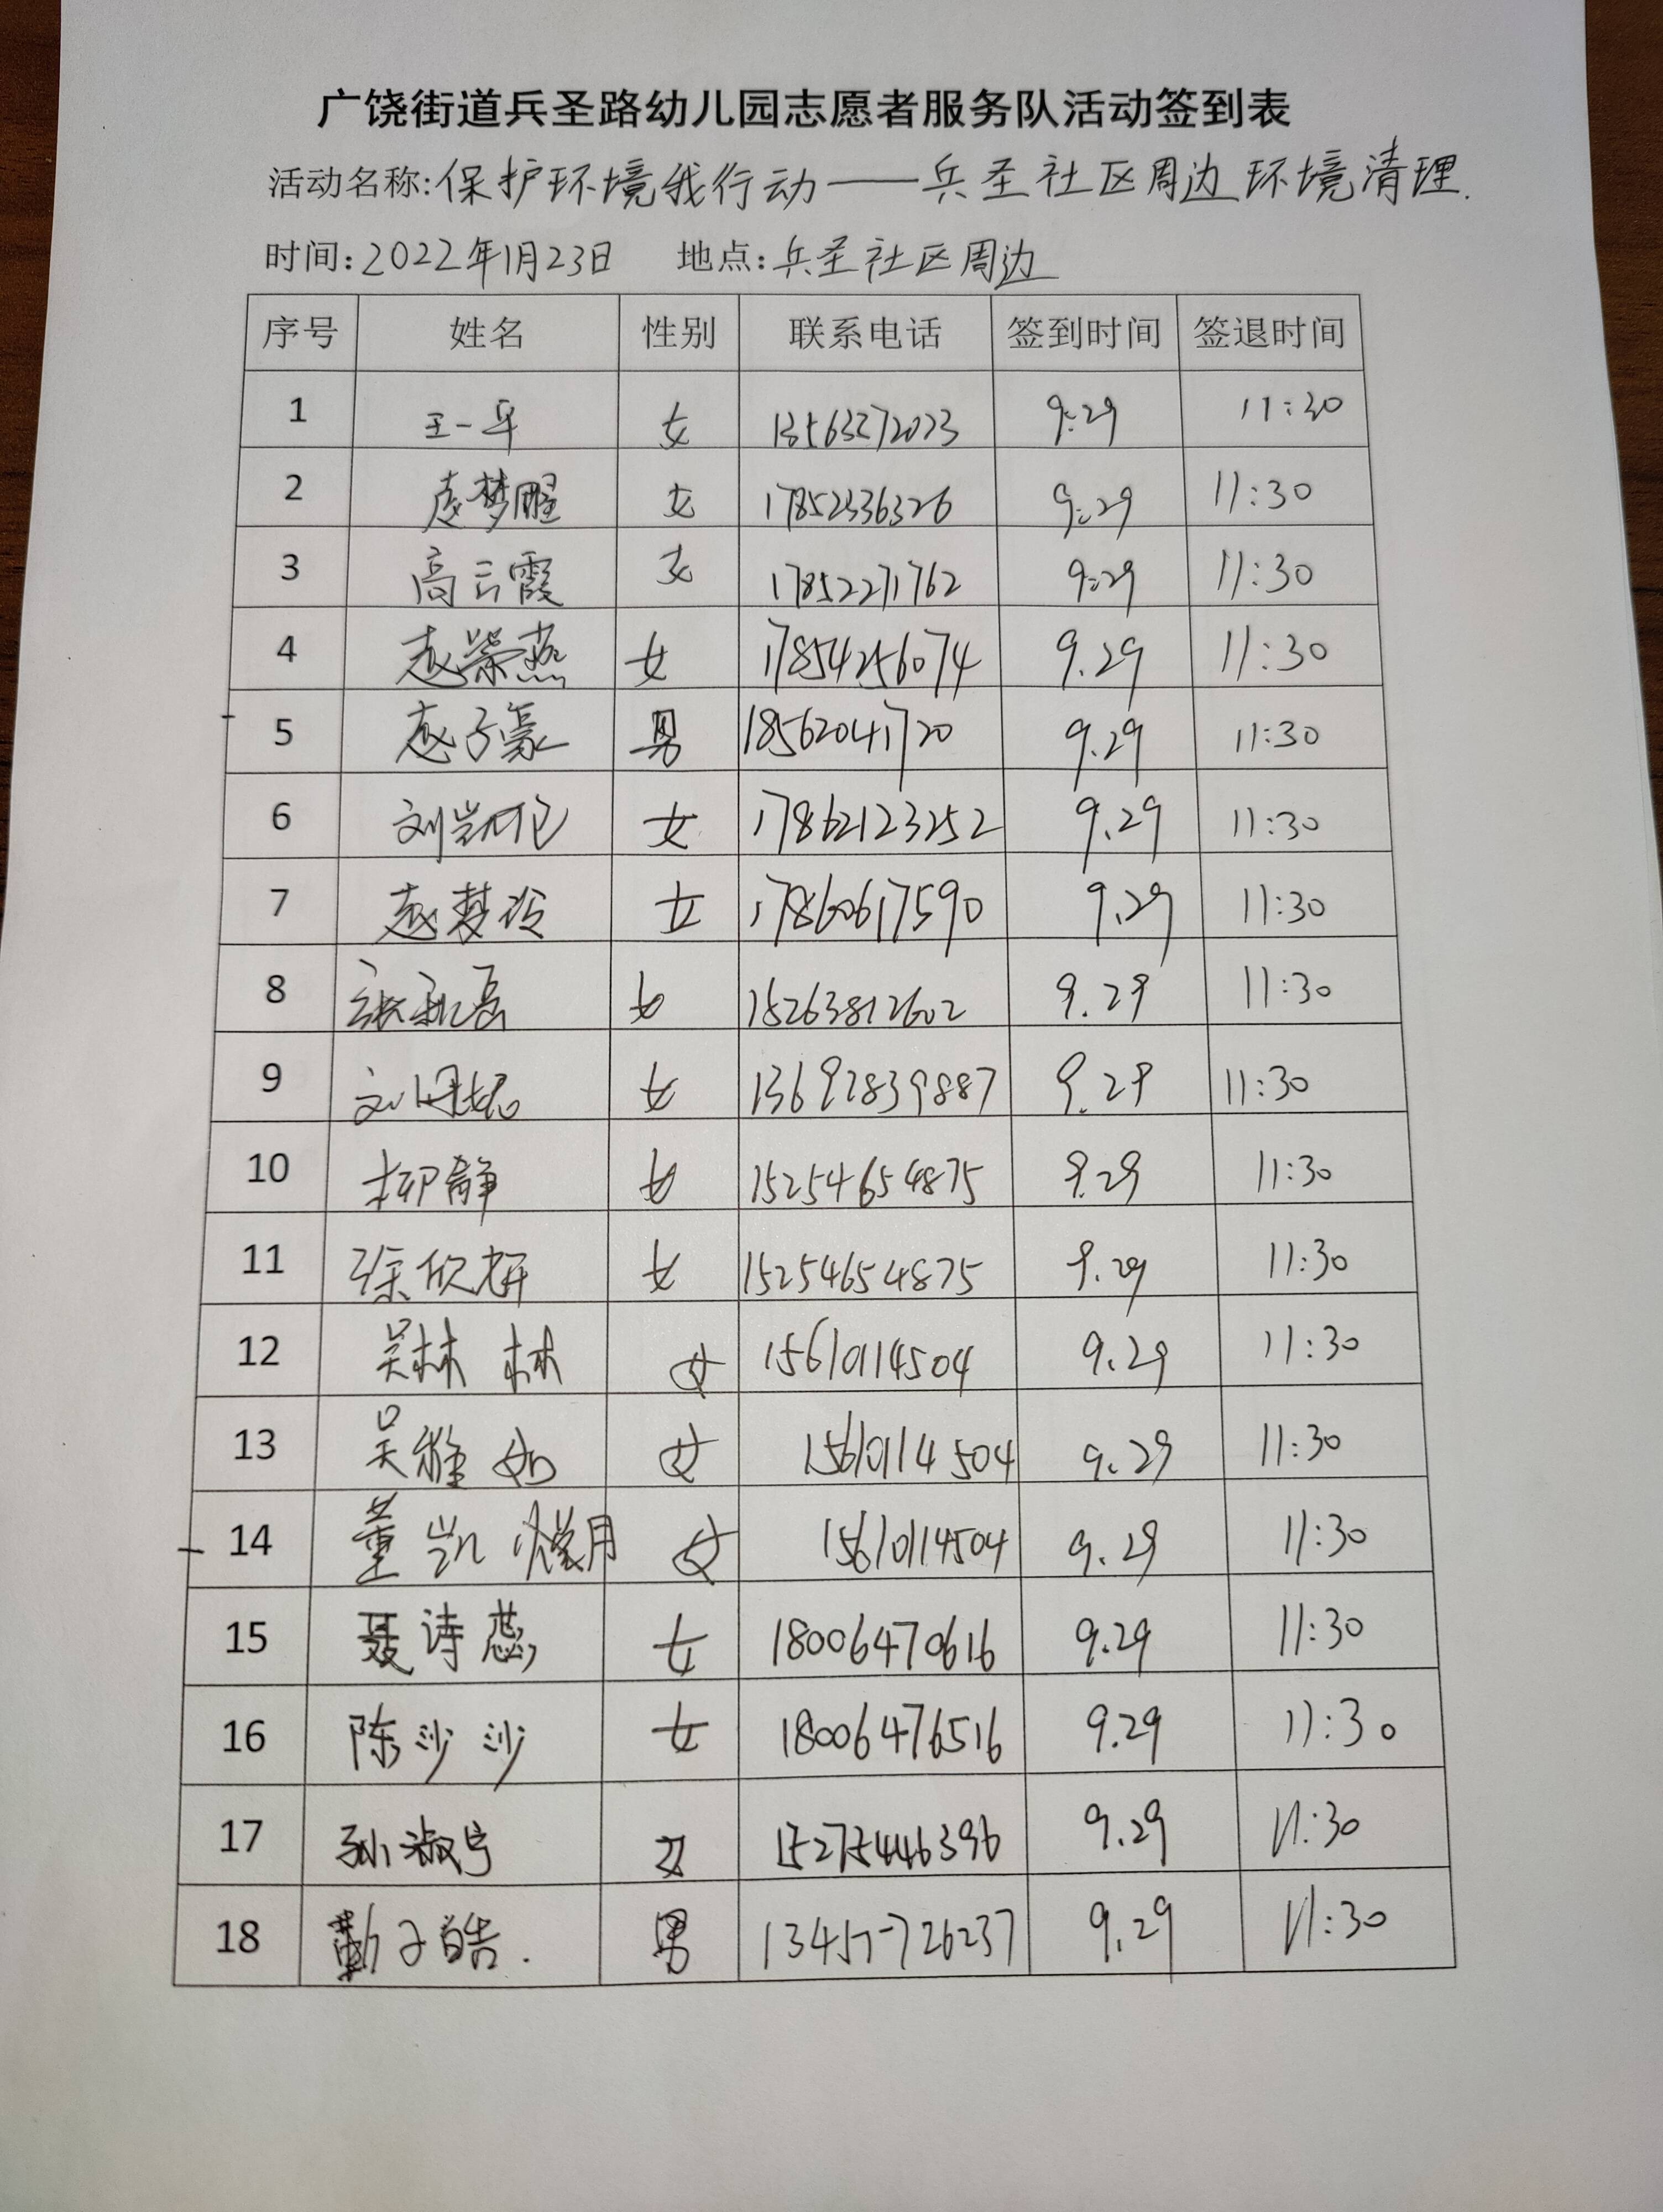 广饶街道兵圣路幼儿园志愿者服务队活动签到表
活动名称:保护环境我行动——兵圣社区周边环境清理.
时间:2022年1月23日 地点:兵圣社区周边
序号 姓名 性别 联系电话 签到时间 签退时间
1 王一 女 9:29 11:30
2 女 17852336326 9:29 11:30
3 高云霞 女 17852271762 9:29 11:30
4 赵荣燕 女 17854256074 9.29 11:30
5 赵子豪 男 18562041720 9.29 11:30
6 女 17862123252 9.29 11:30
7 赵梦玲 女 17860617590 9.29 11:30
8 女 15263812602 9.29 11:30
9 女 13692839887 9.29 11:30
10 柳静 女 15254654875 9.29 11:30
11 徐欣妍 女 15254654875 9.29 11:30
12 吴林林 女 15610114504 9.29 11:30
13 吴雅如 女 15610114504 9.29 11:30
14 董凯 女 15610114504 9.29 11:30
15 聂诗蕊 女 18006470616 9.29 11:30
16 陈沙沙 女 18006476516 9.29 11:30
17 孙淑宁 女 15275446396 9.29 11:30
18 子皓. 男 9.29 11:30